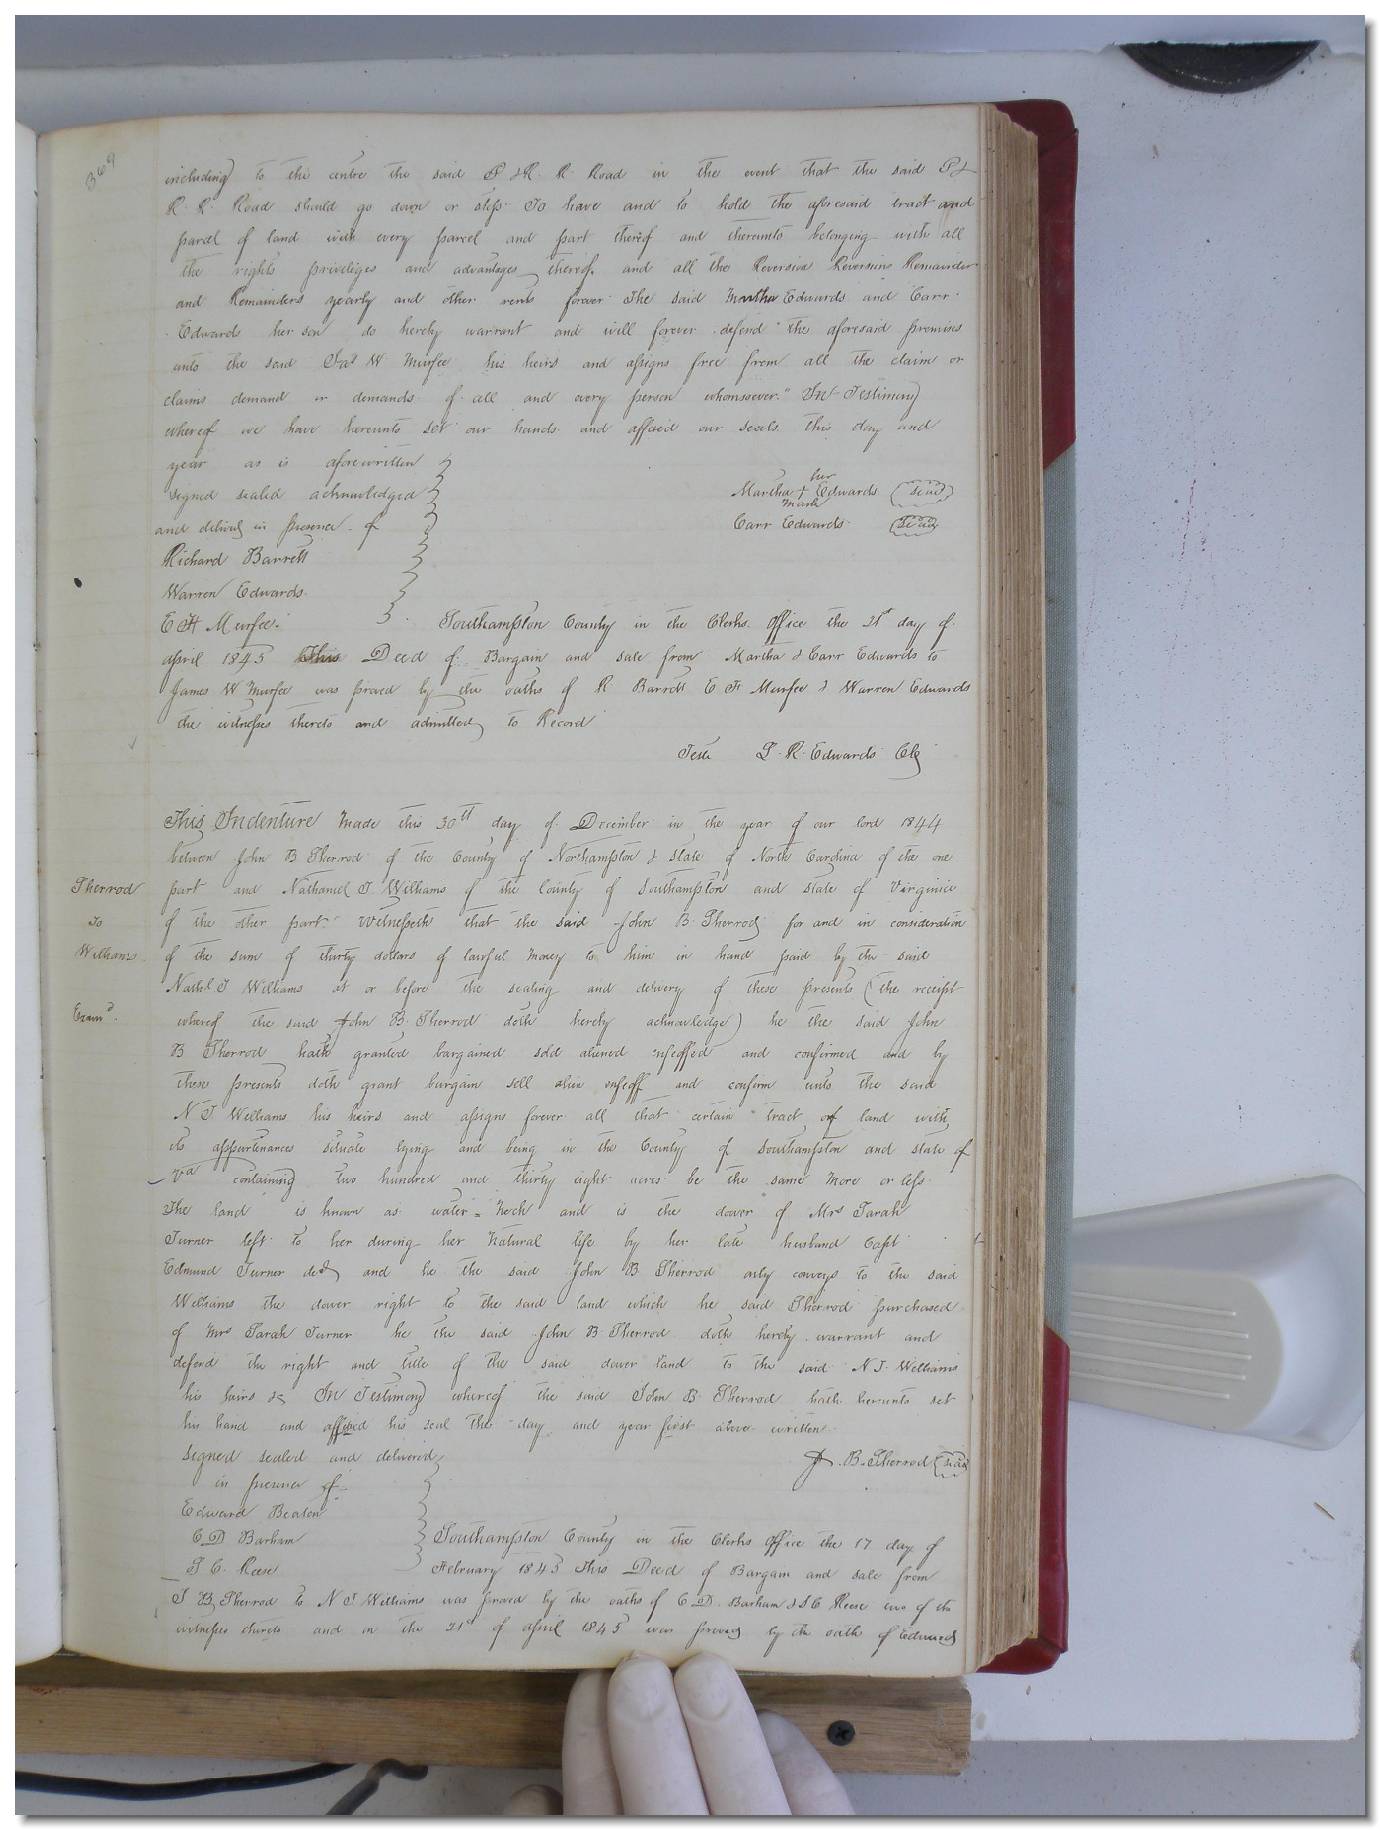 369
including to the centre the said P & R. R. Road in the event that the said P &
R. R. Road should go down or stop. To have and to hold the aforesaid tract and
parcel of land with every parcel and part thereof and thereunto belonging with all
the rights priviliges and advantages thereof. and all the Reversion Reversions Remainder
and Remainders yearly and other rents forever The said Martha Edwards and Carr
Edwards her son do hereby warrant and will forever defend the aforesaid premises
unto the said Jas W Murfee his heirs and assigns free from all the claim or
claims demand or demands of all and every person whomsoever." In Testimony
whereof we have hereunto set our hands and affixed our seals this day and
year as is aforewritten
signed sealed acknowledged
and delivd in presence of
her
Martha + Edwards seal
mark
Carr Edwards seal
Richard Barrett
Warren Edwards
E H Murfee. Southampton County in the Clerks Office the 21st day of
april 1845 This Deed of Bargain and sale from Martha & Carr Edwards to
James W Murfee was proved by the oaths of R Barrett E H Murfee & Warren Edwards
the witnesses thereto and admitted to Record
Teste L. R. Edwards Clk
This Indenture Made this 30th day of December in the year of our lord 1844
between John B Sherrod of the County of Northampton & State of North Carolina of the one
Sherrod
to
Williams
Examd.
part and Nathaniel T Williams of the County of Southampton and state of Virginia
of the other part. Witnesseth that the said John B. Sherrod for and in consideration
of the sum of thirty dollars of lawful money to him in hand paid by the said
Nathl. T Williams at or before the sealing and delivery of these presents (the receipt
whereof the said John B. Sherrod doth hereby acknowledge) he the said John
B Sherrod hath granted bargained sold aliened enfeoffed and confirmed and by
these presents doth grant bargain sell alien enfeoff and confirm unto the said
N T Williams his heirs and assigns forever all that certain tract of land with
its appurtenances situate lying and being in the County of Southampton and state of
Va containing two hundred and thirty eight acres be the same more or less.
The land is known as water = Neck and is the dower of Mrs Sarah
Turner left to her during her Natural life by her late husband Capt
Edmund Turner decd and he the said John B Sherrod only conveys to the said
Williams the dower right to the said land which he said Sherrod purchased
of Mrs Sarah Turner he the said John B. Sherrod doth hereby warrant and
defend the right and title of the said dower land to the said N T. Williams
his heirs &c In Testimony whereof the said John B. Sherrod hath hereunto set
his hand and affixed his seal the day and year first above written
signed sealed and delivered
in presence of
J. B. Sherrod seal
Edward Beaton
C D Barham
S C. Reese
Southampton County in the Clerks Office the 17 day of
February 1845 This Deed of Bargain and sale from
J B Sherrod to N T Williams was proved by the oaths of C D. Barham & S C Reese two of the
witnesses thereto and on the 21st of april 1845 was proved by the oath of Edward